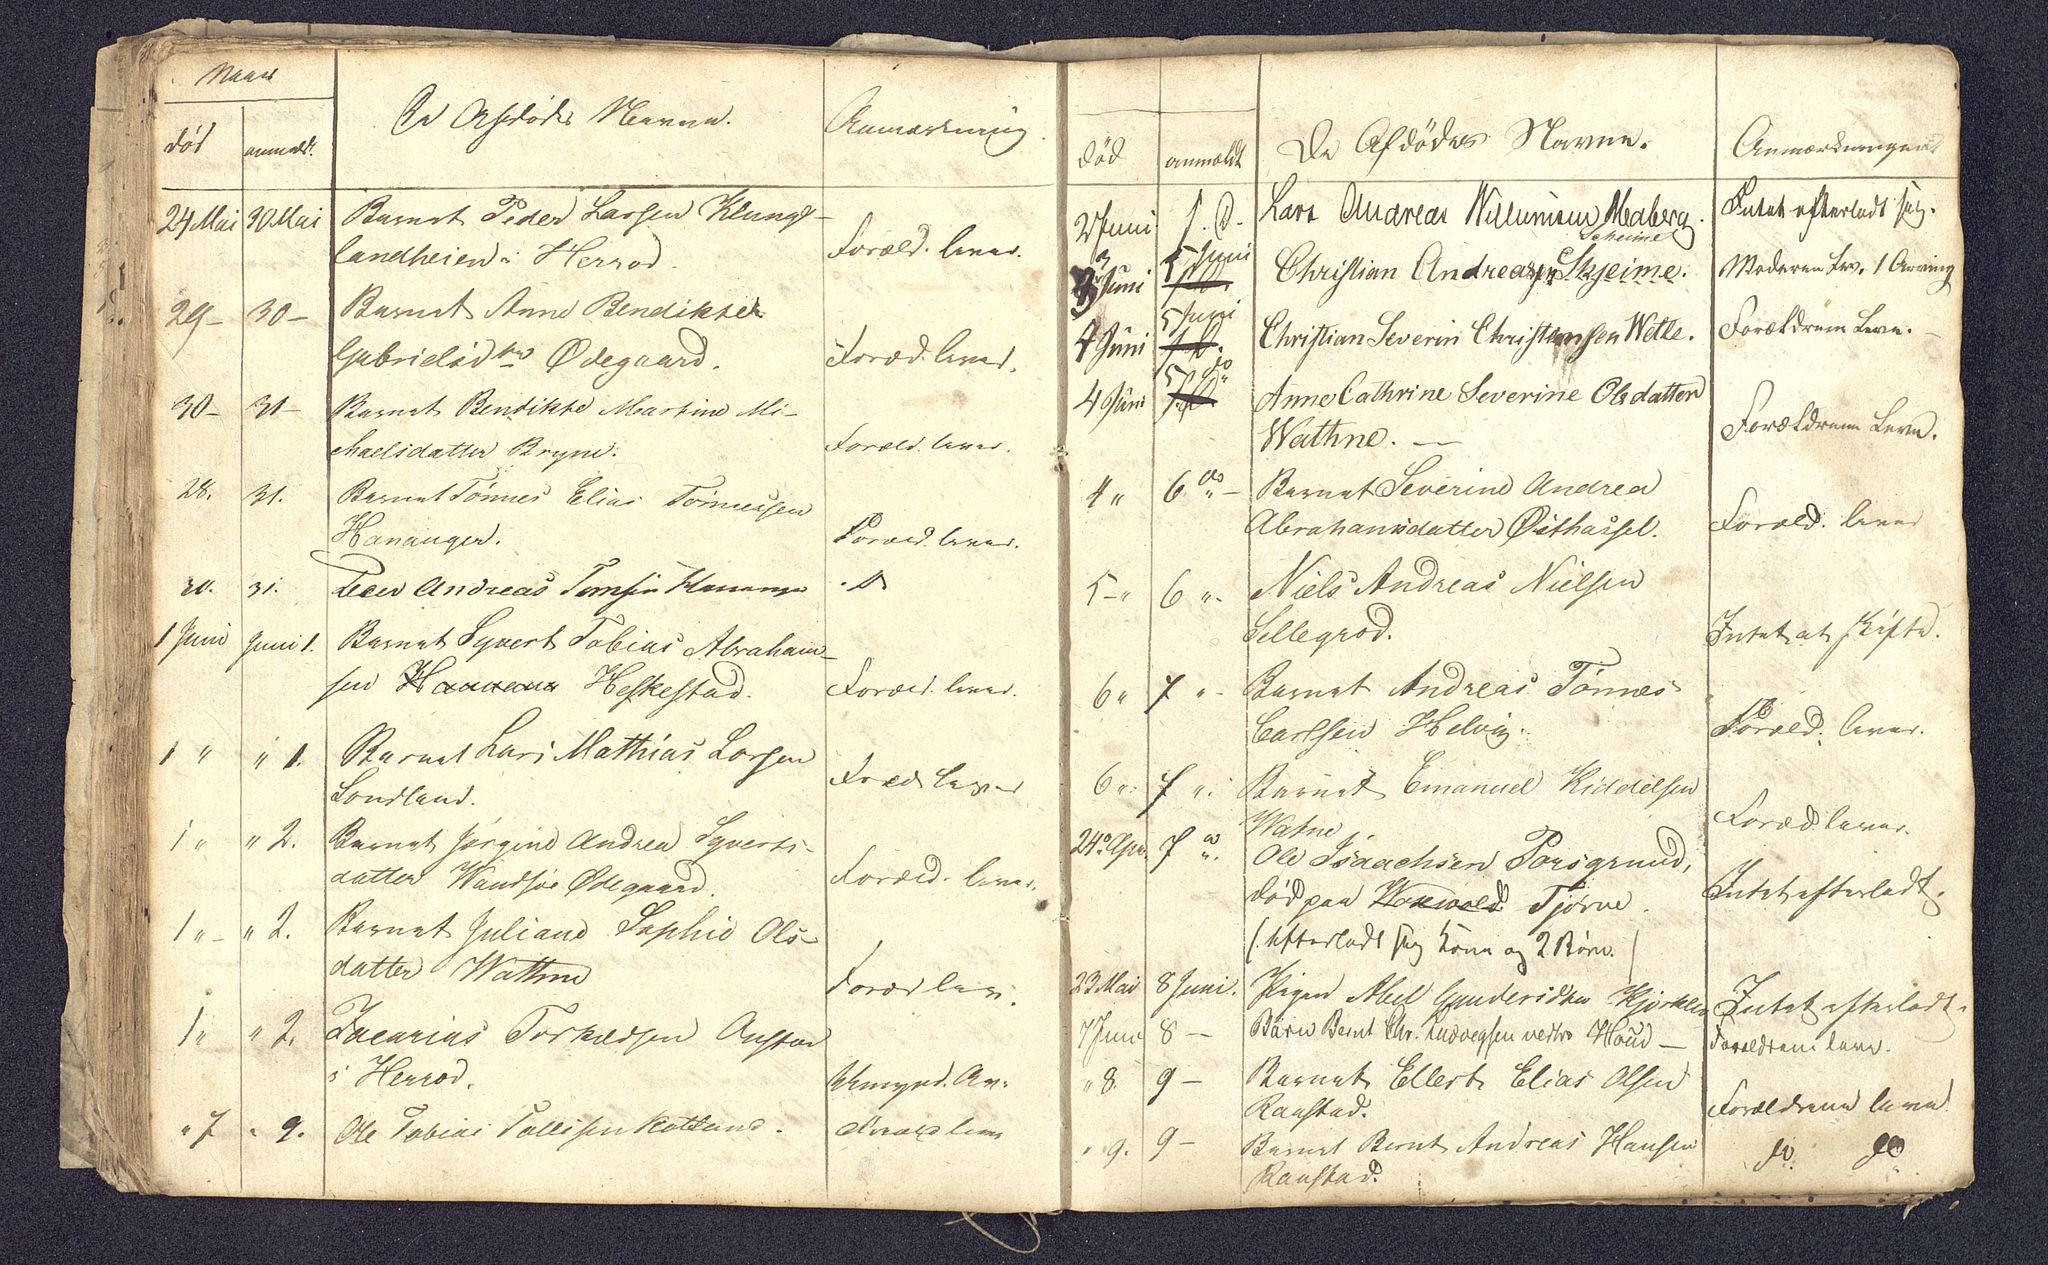 Naar
død anmeldt. De Afdødes Navne. Anmærkning.
24 Mai 30 Mai Barnet Peder Larsen Klungs-
landheien i Herrød. Foræld. lever.
29 - 30 - Barnet Anne Bendikte
Gabrielsdtr Ødegaard. Foræld. lever.
30 - 31 - Barnet Bendikte Martine Mi-
chaelsdatter Bryne. Foræld. lever.
28. 31. Barnet Tønnes Elias Tønnessen
Hananger. Foræld. lever.
30. 31. Peder Andreas
1 Juni Juni 1. Barnet Syvert Tobias Abraham-
sen Heskestad. Foræld. lever.
1 " " 1. Barnet Lars Mathias Larsen
Londland. Foræld. lever
1 " " 2. Barnet Jørgine Andrea Syverts-
datter Vandsøe Ødegaard. Foræld. lever.
1 " - " 2. Barnet Juliane Sophie Ols-
datter Wathne Foræld lev.
1 " " 2. Zacarias Torkildsen
i Herrød. Umynd. Ar-
" 7 " 9. Ole Tobias Tollisen
død anmældt De Afdødes Navne. Anmærkninger
2 Juni s. D. Lars Andreas Willumsen Medberg. Intet efterladt sig.
Scheime
3 5 Juni
3 Juni s. D. Christian Andreas Skjeime. Moderen Lev. 1 Arving
5 Juni
4 Juni s. D. Christian Severin Christensen Wetle. Forældrene Leve. -
5 do
4 Juni s. D. Anne Cathrine Severine Olsdatter
Wathne. - Forældrene Leve.
4 " 6 do " - Barnet Severine Andrea
Abrahamsdatter Østhassel. Foræld. lever
5 - " 6 " - Niels Andreas Nielsen
Sellegrod. Intet at skifte.
6 " 7 " - Barnet Andreas Tønnes
Carlsen Helvig. Foræld. lever.
6 " . 7 " . Barnet Emanuel Kiddelsen
Watne. Foræld lever.
24 Apr. 7 " . Ole Isaachsen Porsgrund,
død paa Tjørve. Intet efterladt.
(efterladt sig Kone og 2 Børn.)
23 Mai 8 Juni. Pigen Abel Gundersdtr Intet efterladt.
7 Juni 8 - Barn Bernt Chr. Ludvegsen vestre Haud - Forældrene leve.
" 8. 9 - Barnet Ellert Elias Olsen
Raastad. Forældrene leve
" 9. 9 - Barnet Bernt Andreas Hansen
Raastad. do. do